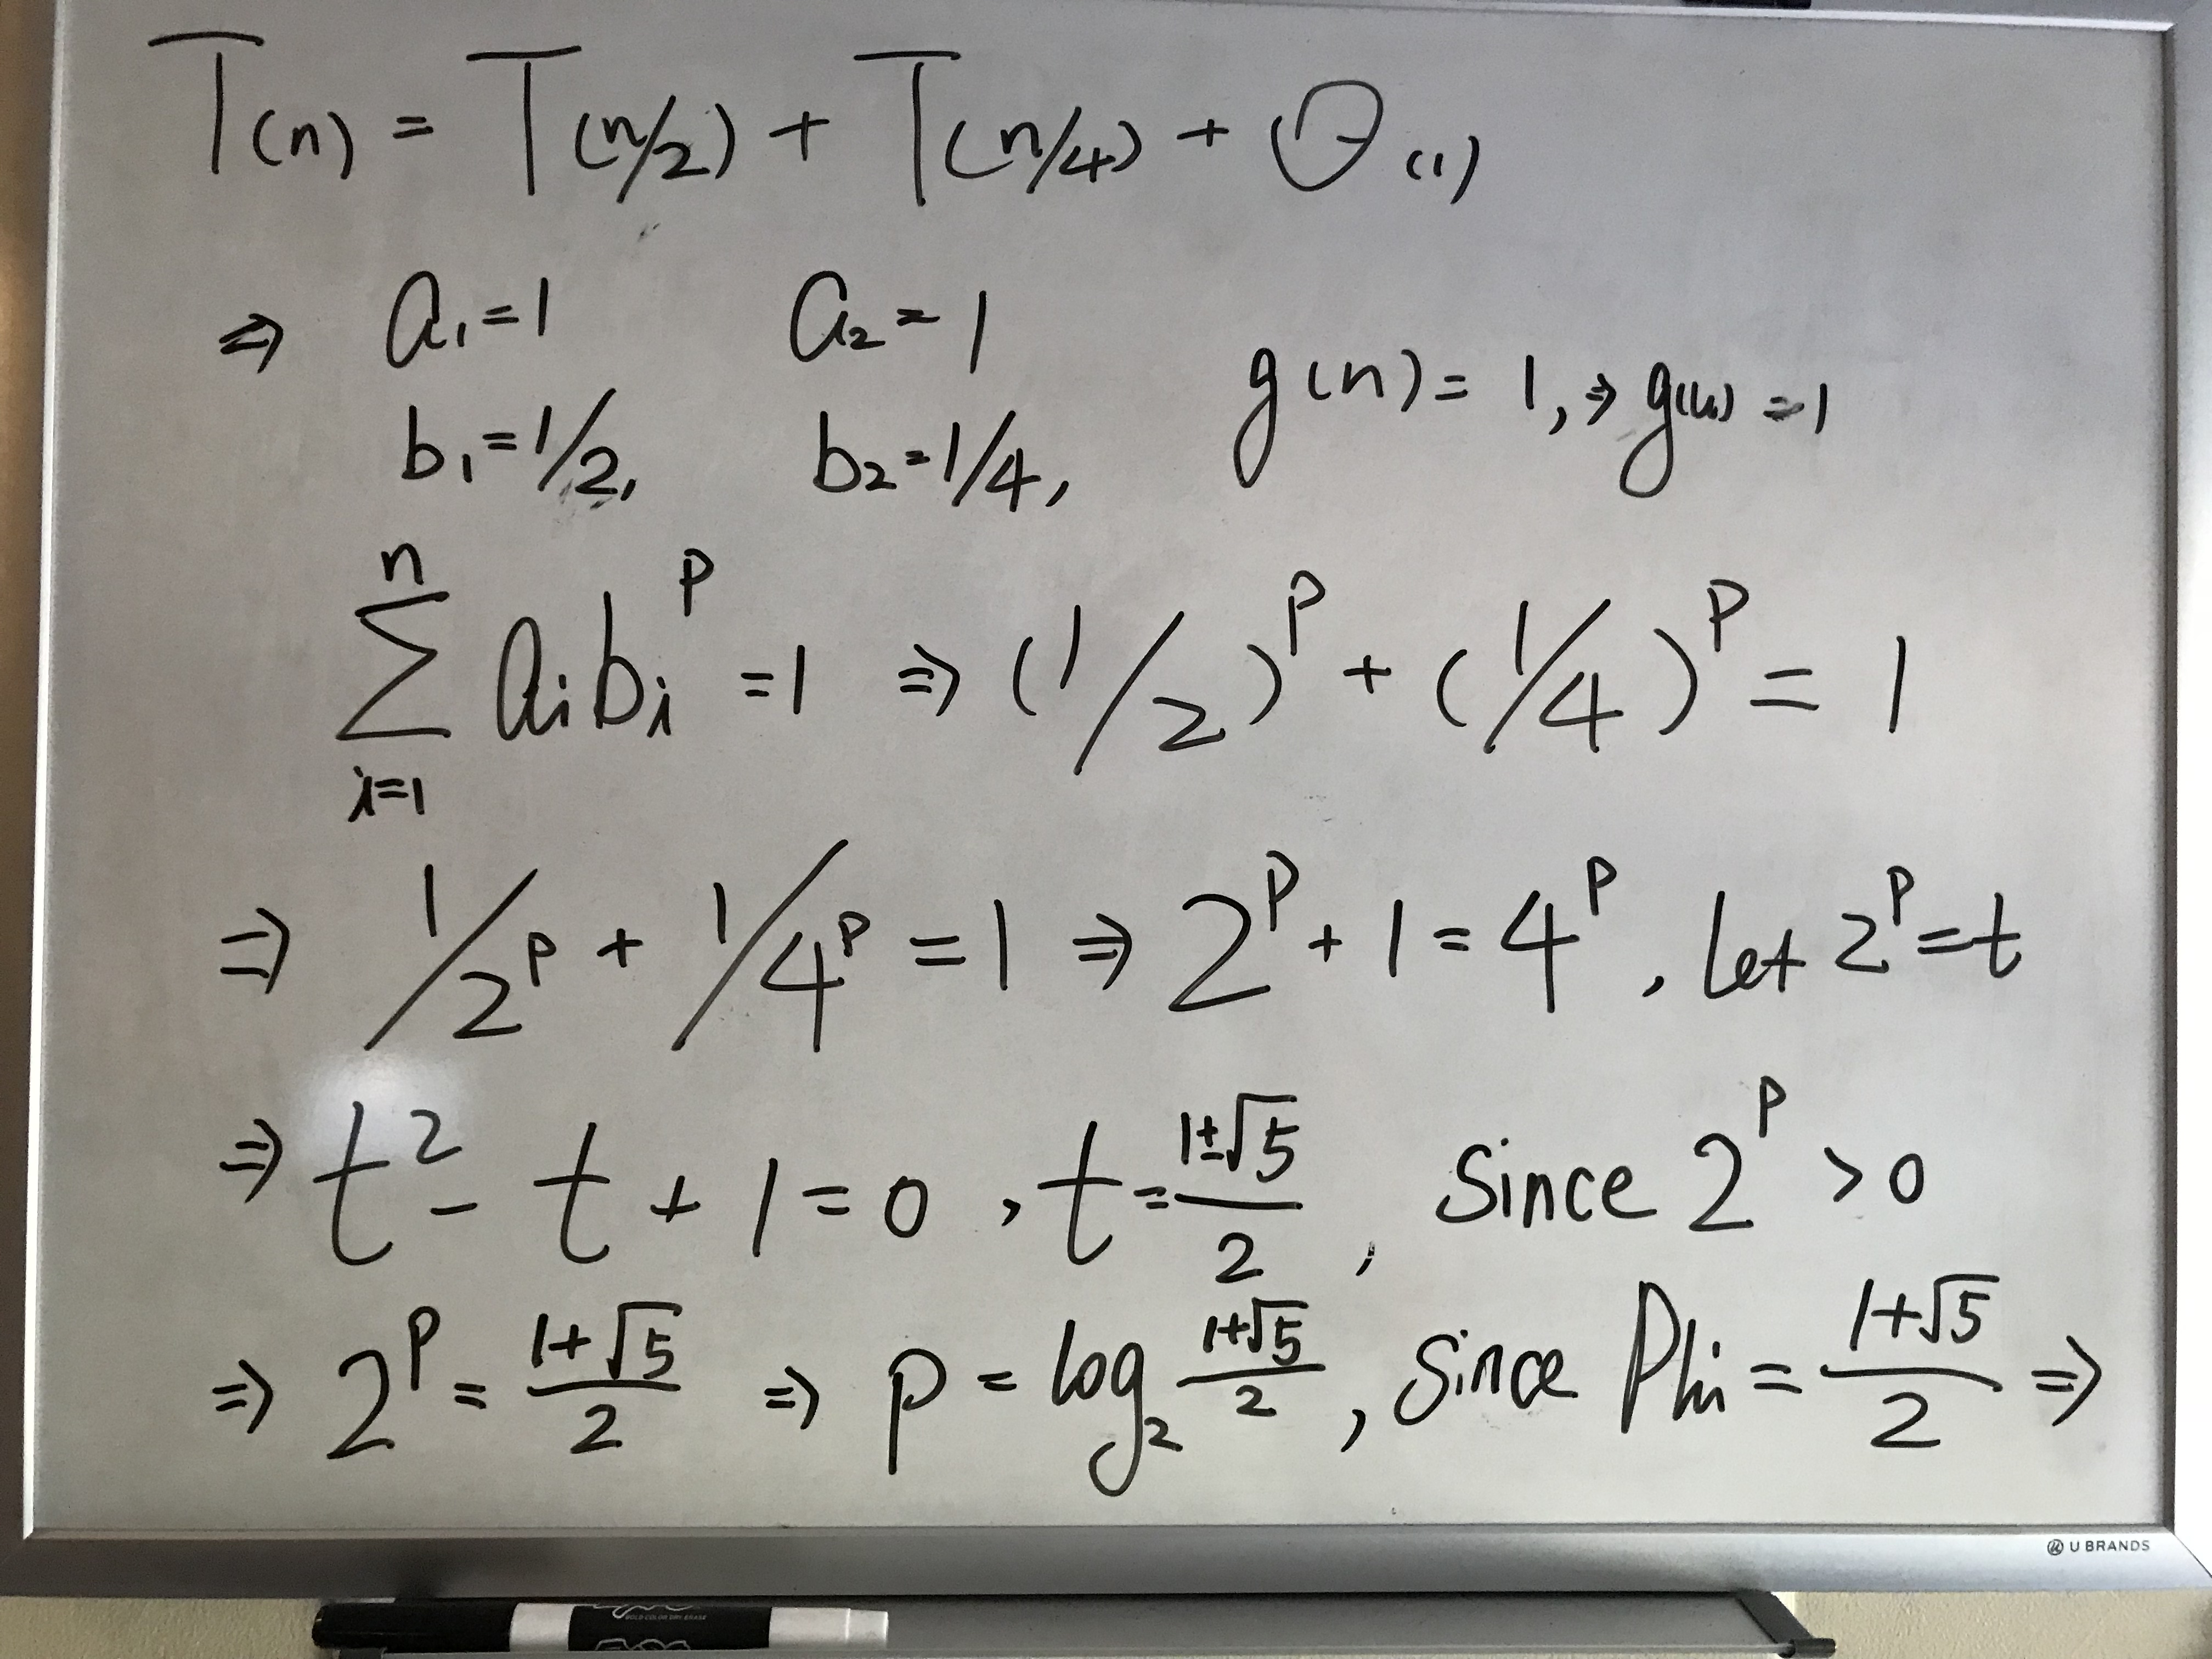 T(n) = T(n/2) + T(n/4) + Θ(1)
⇒ a₁=1 a₂=1
b₁=1/2, b₂=1/4, g(n)= 1, ⇒ g(u) =1
n
∑ aᵢbᵢᵖ =1 ⇒ (1/2)ᵖ + (1/4)ᵖ = 1
i=1
⇒ 1/2ᵖ + 1/4ᵖ = 1 ⇒ 2ᵖ + 1 = 4ᵖ, let 2ᵖ=t
⇒ t² - t + 1 = 0, t = (1±√5)/2, since 2ᵖ > 0
⇒ 2ᵖ = (1+√5)/2 ⇒ p = log₂ (1+√5)/2, since Phi = (1+√5)/2 ⇒
U BRANDS
BOLD COLOR DRY ERASE